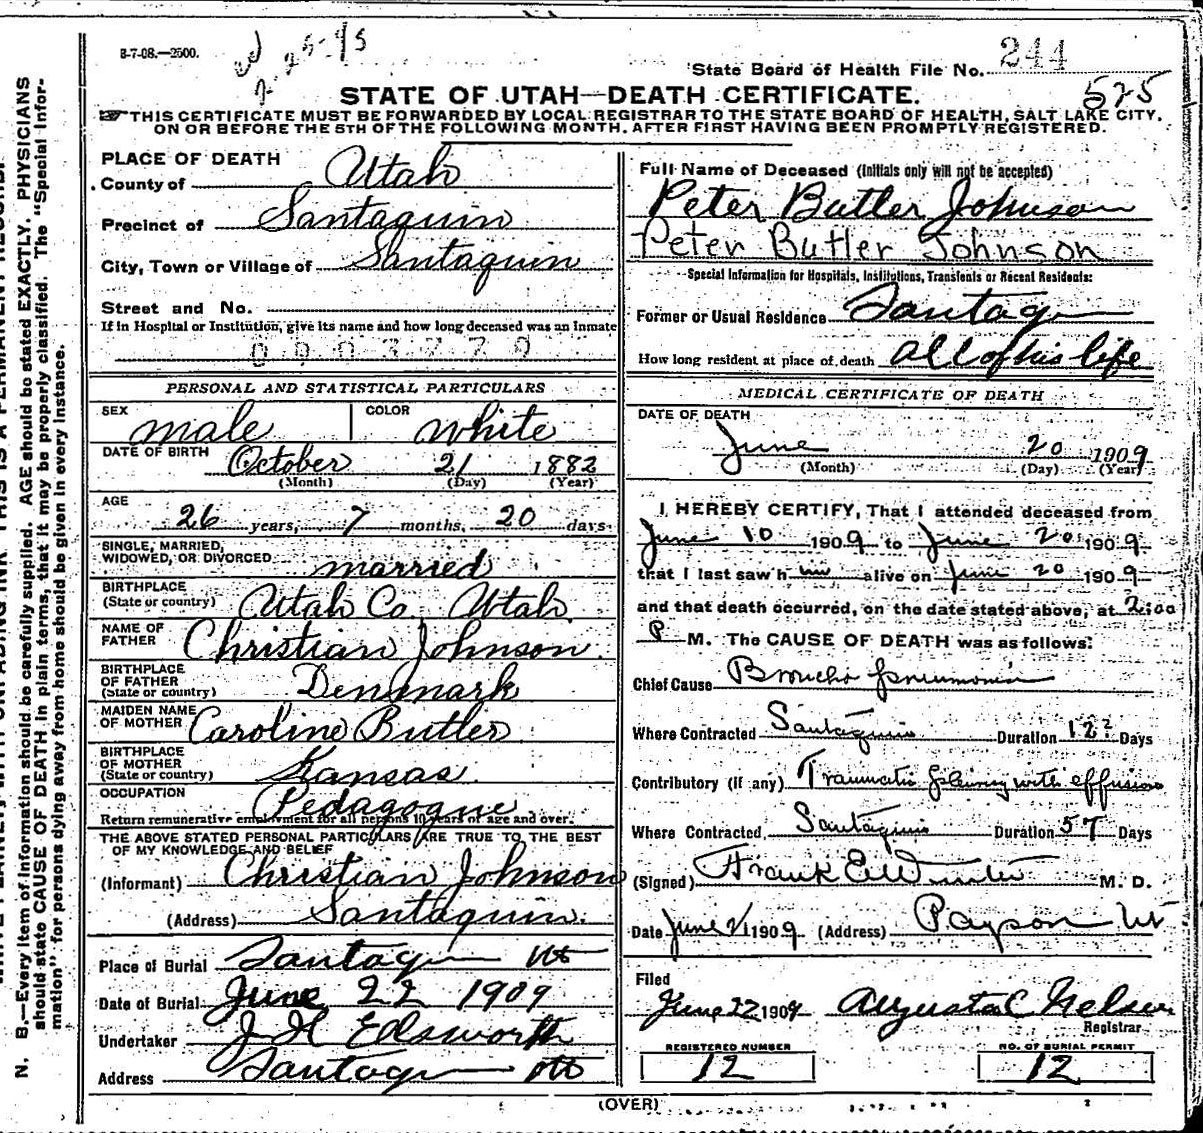 8-7-08.—2500.
25-95
State Board of Health File No. 244
525
STATE OF UTAH—DEATH CERTIFICATE.
THIS CERTIFICATE MUST BE FORWARDED BY LOCAL REGISTRAR TO THE STATE BOARD OF HEALTH, SALT LAKE CITY,
ON OR BEFORE THE 5TH OF THE FOLLOWING MONTH, AFTER FIRST HAVING BEEN PROMPTLY REGISTERED.
PLACE OF DEATH
County of Utah
Precinct of Santaquin
City, Town or Village of Santaquin
Street and No.
If in Hospital or Institution, give its name and how long deceased was an Inmate
PERSONAL AND STATISTICAL PARTICULARS
SEX male COLOR white
DATE OF BIRTH October 21 1882
(Month) (Day) (Year)
AGE
26 years, 7 months, 20 days
SINGLE, MARRIED,
WIDOWED, OR DIVORCED married
BIRTHPLACE
(State or country) Utah Co. Utah
NAME OF
FATHER Christian Johnson
BIRTHPLACE
OF FATHER
(State or country) Denmark
MAIDEN NAME
OF MOTHER Caroline Butler
BIRTHPLACE
OF MOTHER
(State or country) Kansas
OCCUPATION Pedagogue
Return remunerative employment for all persons 10 years of age and over.
THE ABOVE STATED PERSONAL PARTICULARS ARE TRUE TO THE BEST
OF MY KNOWLEDGE AND BELIEF
(Informant) Christian Johnson
(Address) Santaquin.
Place of Burial Santaquin Ut
Date of Burial June 22 1909
Undertaker J H Ellsworth
Address Santaquin Ut
Full Name of Deceased (Initials only will not be accepted)
Peter Butler Johnson
Peter Butler Johnson
Special Information for Hospitals, Institutions, Transients or Recent Residents:
Former or Usual Residence Santaquin
How long resident at place of death all of his life
MEDICAL CERTIFICATE OF DEATH
DATE OF DEATH
June 20 1909
(Month) (Day) (Year)
I HEREBY CERTIFY, That I attended deceased from
June 10 1909 to June 20 1909
that I last saw him alive on June 20 1909
and that death occurred, on the date stated above, at 2:00
P M. The CAUSE OF DEATH was as follows:
Chief Cause Broncho pneumonia
Where Contracted Santaquin Duration 12 Days
Contributory (if any) Traumatic pleurisy with effusion
Where Contracted Santaquin Duration 57 Days
(Signed) Frank E. M. D.
Date June 21 1909 (Address) Payson Ut
Filed
June 22 1909 Augusta C Nelson
Registrar
REGISTERED NUMBER
12
NO. OF BURIAL PERMIT
12
(OVER)
N. B.—Every item of information should be carefully supplied. AGE should be stated EXACTLY. PHYSICIANS
should state CAUSE OF DEATH in plain terms, that it may be properly classified. The "Special Infor-
mation" for persons dying away from home should be given in every instance.